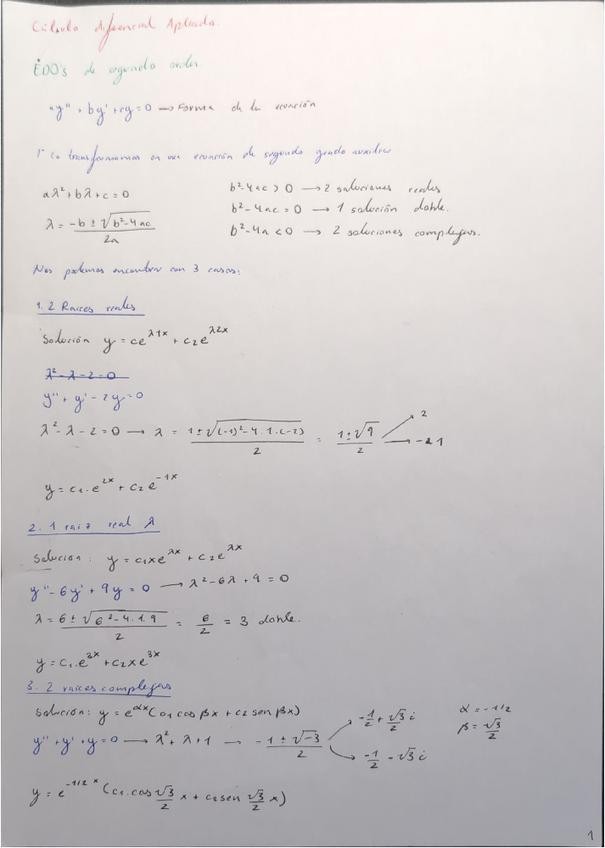 Cálculo diferencial Aplicado.
EDO's de segundo orden
ay" + by' + cy = 0 → Forma de la ecuación
1º La transformamos en una ecuación de segundo grado auxiliar
aλ² + bλ + c = 0
b² - 4ac > 0 → 2 soluciones reales
b² - 4ac = 0 → 1 solución doble.
λ = -b ± √(b² - 4ac) / 2a
b² - 4a < 0 → 2 soluciones complejas.
Nos podemos encontrar con 3 casos:
1. 2 Raices reales
Solución y = ce^λ1x + c2e^λ2x
λ² - λ - 2 = 0
y" + y' - 2y = 0
λ² - λ - 2 = 0 → λ = 1 ± √((-1)² - 4 · 1 · (-2)) / 2 = 1 ± √9 / 2 → 2 → -1
y = c1 · e^2x + c2 e^-1x
2. 1 raiz real λ
Solución: y = c1xe^λx + c2e^λx
y" - 6y' + 9y = 0 → λ² - 6λ + 9 = 0
λ = 6 ± √(6² - 4 · 1 · 9) / 2 = 6/2 = 3 doble.
y = c1 · e^3x + c2xe^3x
3. 2 raices complejas
Solución: y = e^αx (c1 cos βx + c2 sen βx)
y" + y' + y = 0 → λ² + λ + 1 → -1 ± √-3 / 2 → -1/2 + √3 i → -1/2 - √3 i
α = -1/2
β = √3/2
y = e^-1/2 x (c1 · cos √3/2 x + c2 sen √3/2 x)
1